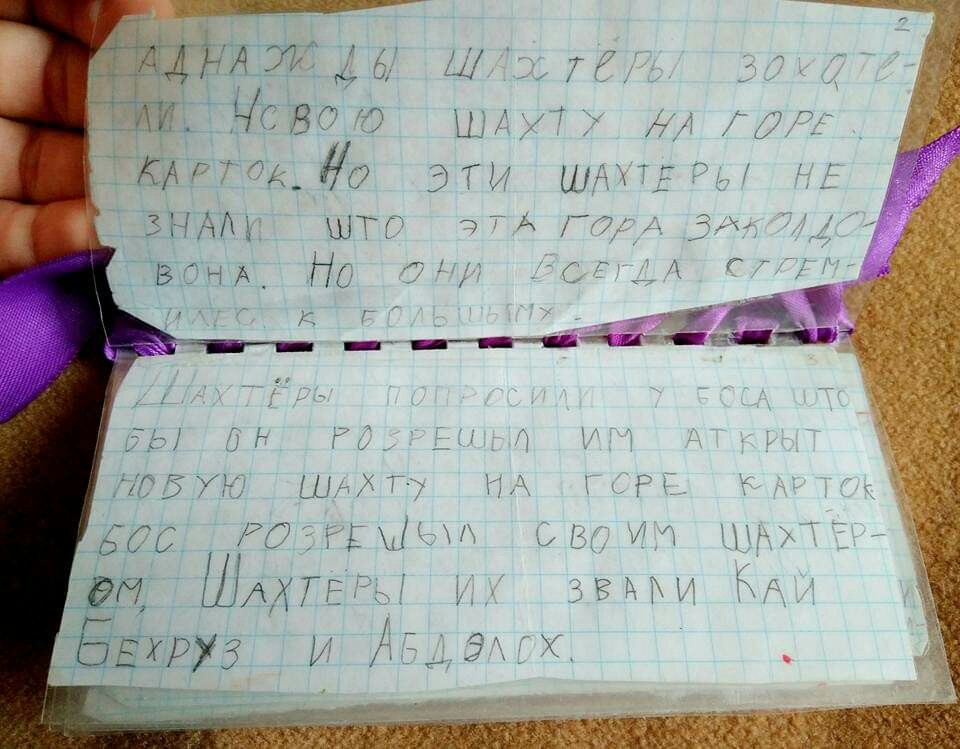 2
АДНАЖДЫ ШАХТЁРЫ ЗОХОТЕ-
ЛИ. НОВОЮ ШАХТУ НА ГОРЕ.
КАРТОК. НО ЭТИ ШАХТЁРЫ НЕ
ЗНАЛИ ШТО ЭТА ГОРА ЗАКОЛДО-
ВОНА. НО ОНИ ВСЕГДА СТРЕМ-
ИЛЕС К БОЛЬШЫМУ.
3
ШАХТЁРЫ ПОПРОСИЛИ У БОСА ШТО
БЫ ОН РОЗРЕШЫЛ ИМ АТКРЫТ
НОВУЮ ШАХТУ НА ГОРЕ КАРТОК
БОС РОЗРЕШЫЛ СВОИМ ШАХТЁР-
ОМ. ШАХТЁРЫ ИХ ЗВАЛИ КАЙ
БЕХРУЗ И АБДЭЛОХ.